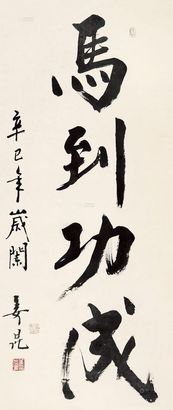 馬到功成
辛巳年歲闌
姜昆